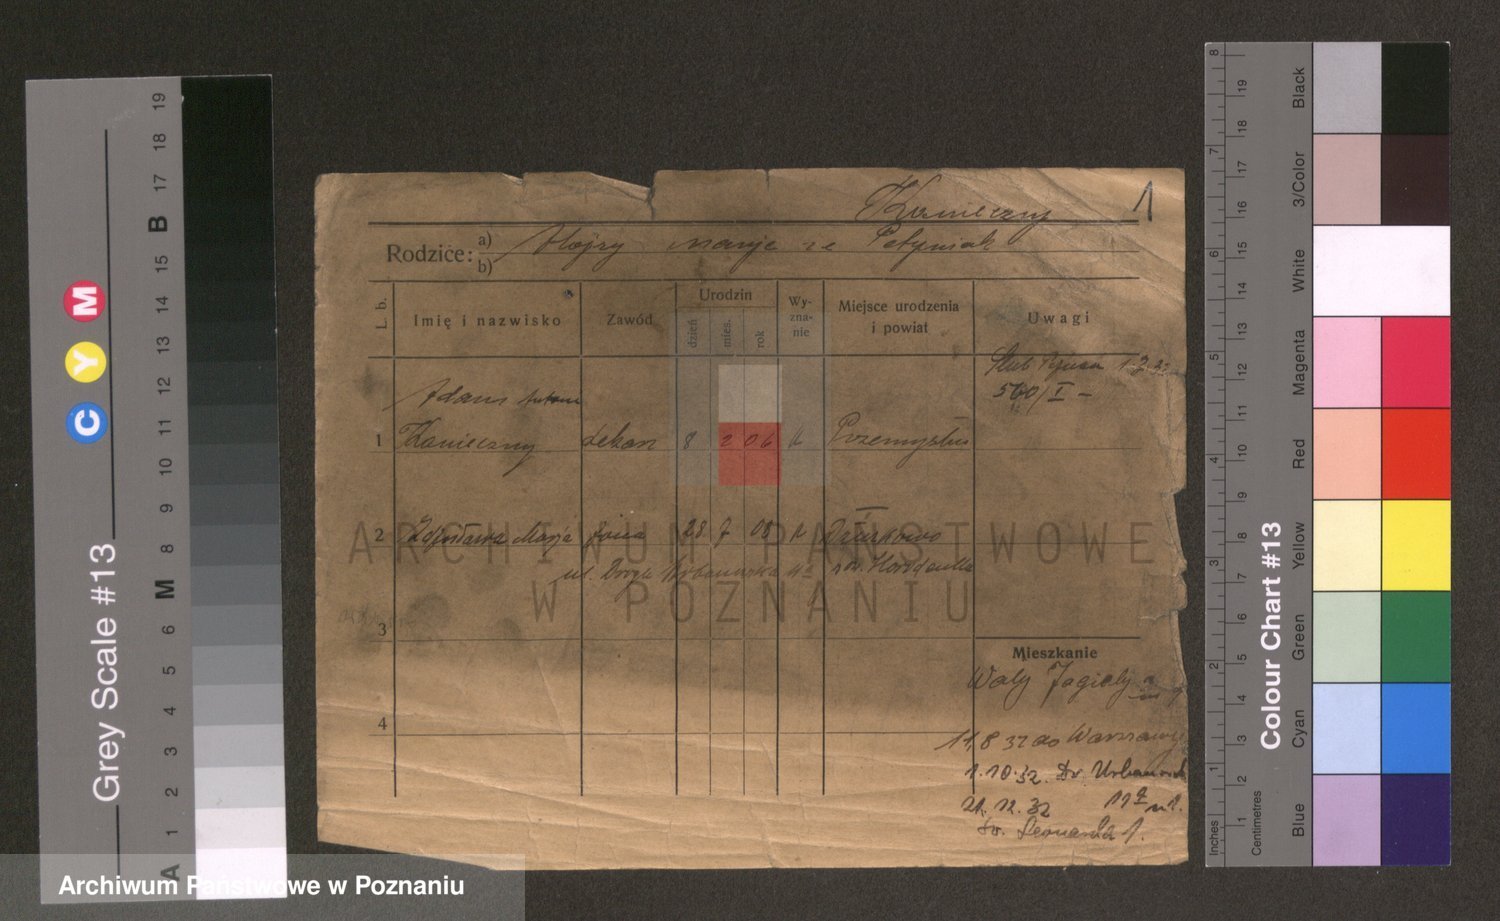 Konieczny 1
Rodzice: a) Alojzy Marja ze Patyniak
b)
L. b.
Imię i nazwisko
Zawód
Urodzin
dzień
mies.
rok
Wy-
zna-
nie
Miejsce urodzenia
i powiat
Uwagi
Ślub 1.2.32
560/I –
Adam Antoni
1 Konieczny lekarz 8 2 06 k Przemysław
2 Marja żona 28 7 08 k
ul. Droga Urbanowska
3
Mieszkanie
Wały Jagiełły
4
11.8 32 do Warszawy
1.10.32. Dr. Urbanowska
21.12.32 11a m 1.
św. Leonarda 1.
ARCHIWUM PAŃSTWOWE
W POZNANIU
Archiwum Państwowe w Poznaniu
Grey Scale #13
C Y M
A 1 2 3 4 5 6 M 8 9 10 11 12 13 14 15 B 17 18 19
Colour Chart #13
Blue Cyan Green Yellow Red Magenta White 3/Color Black
Inches 1 2 3 4 5 6 7 8
Centimetres 1 2 3 4 5 6 7 8 9 10 11 12 13 14 15 16 17 18 19